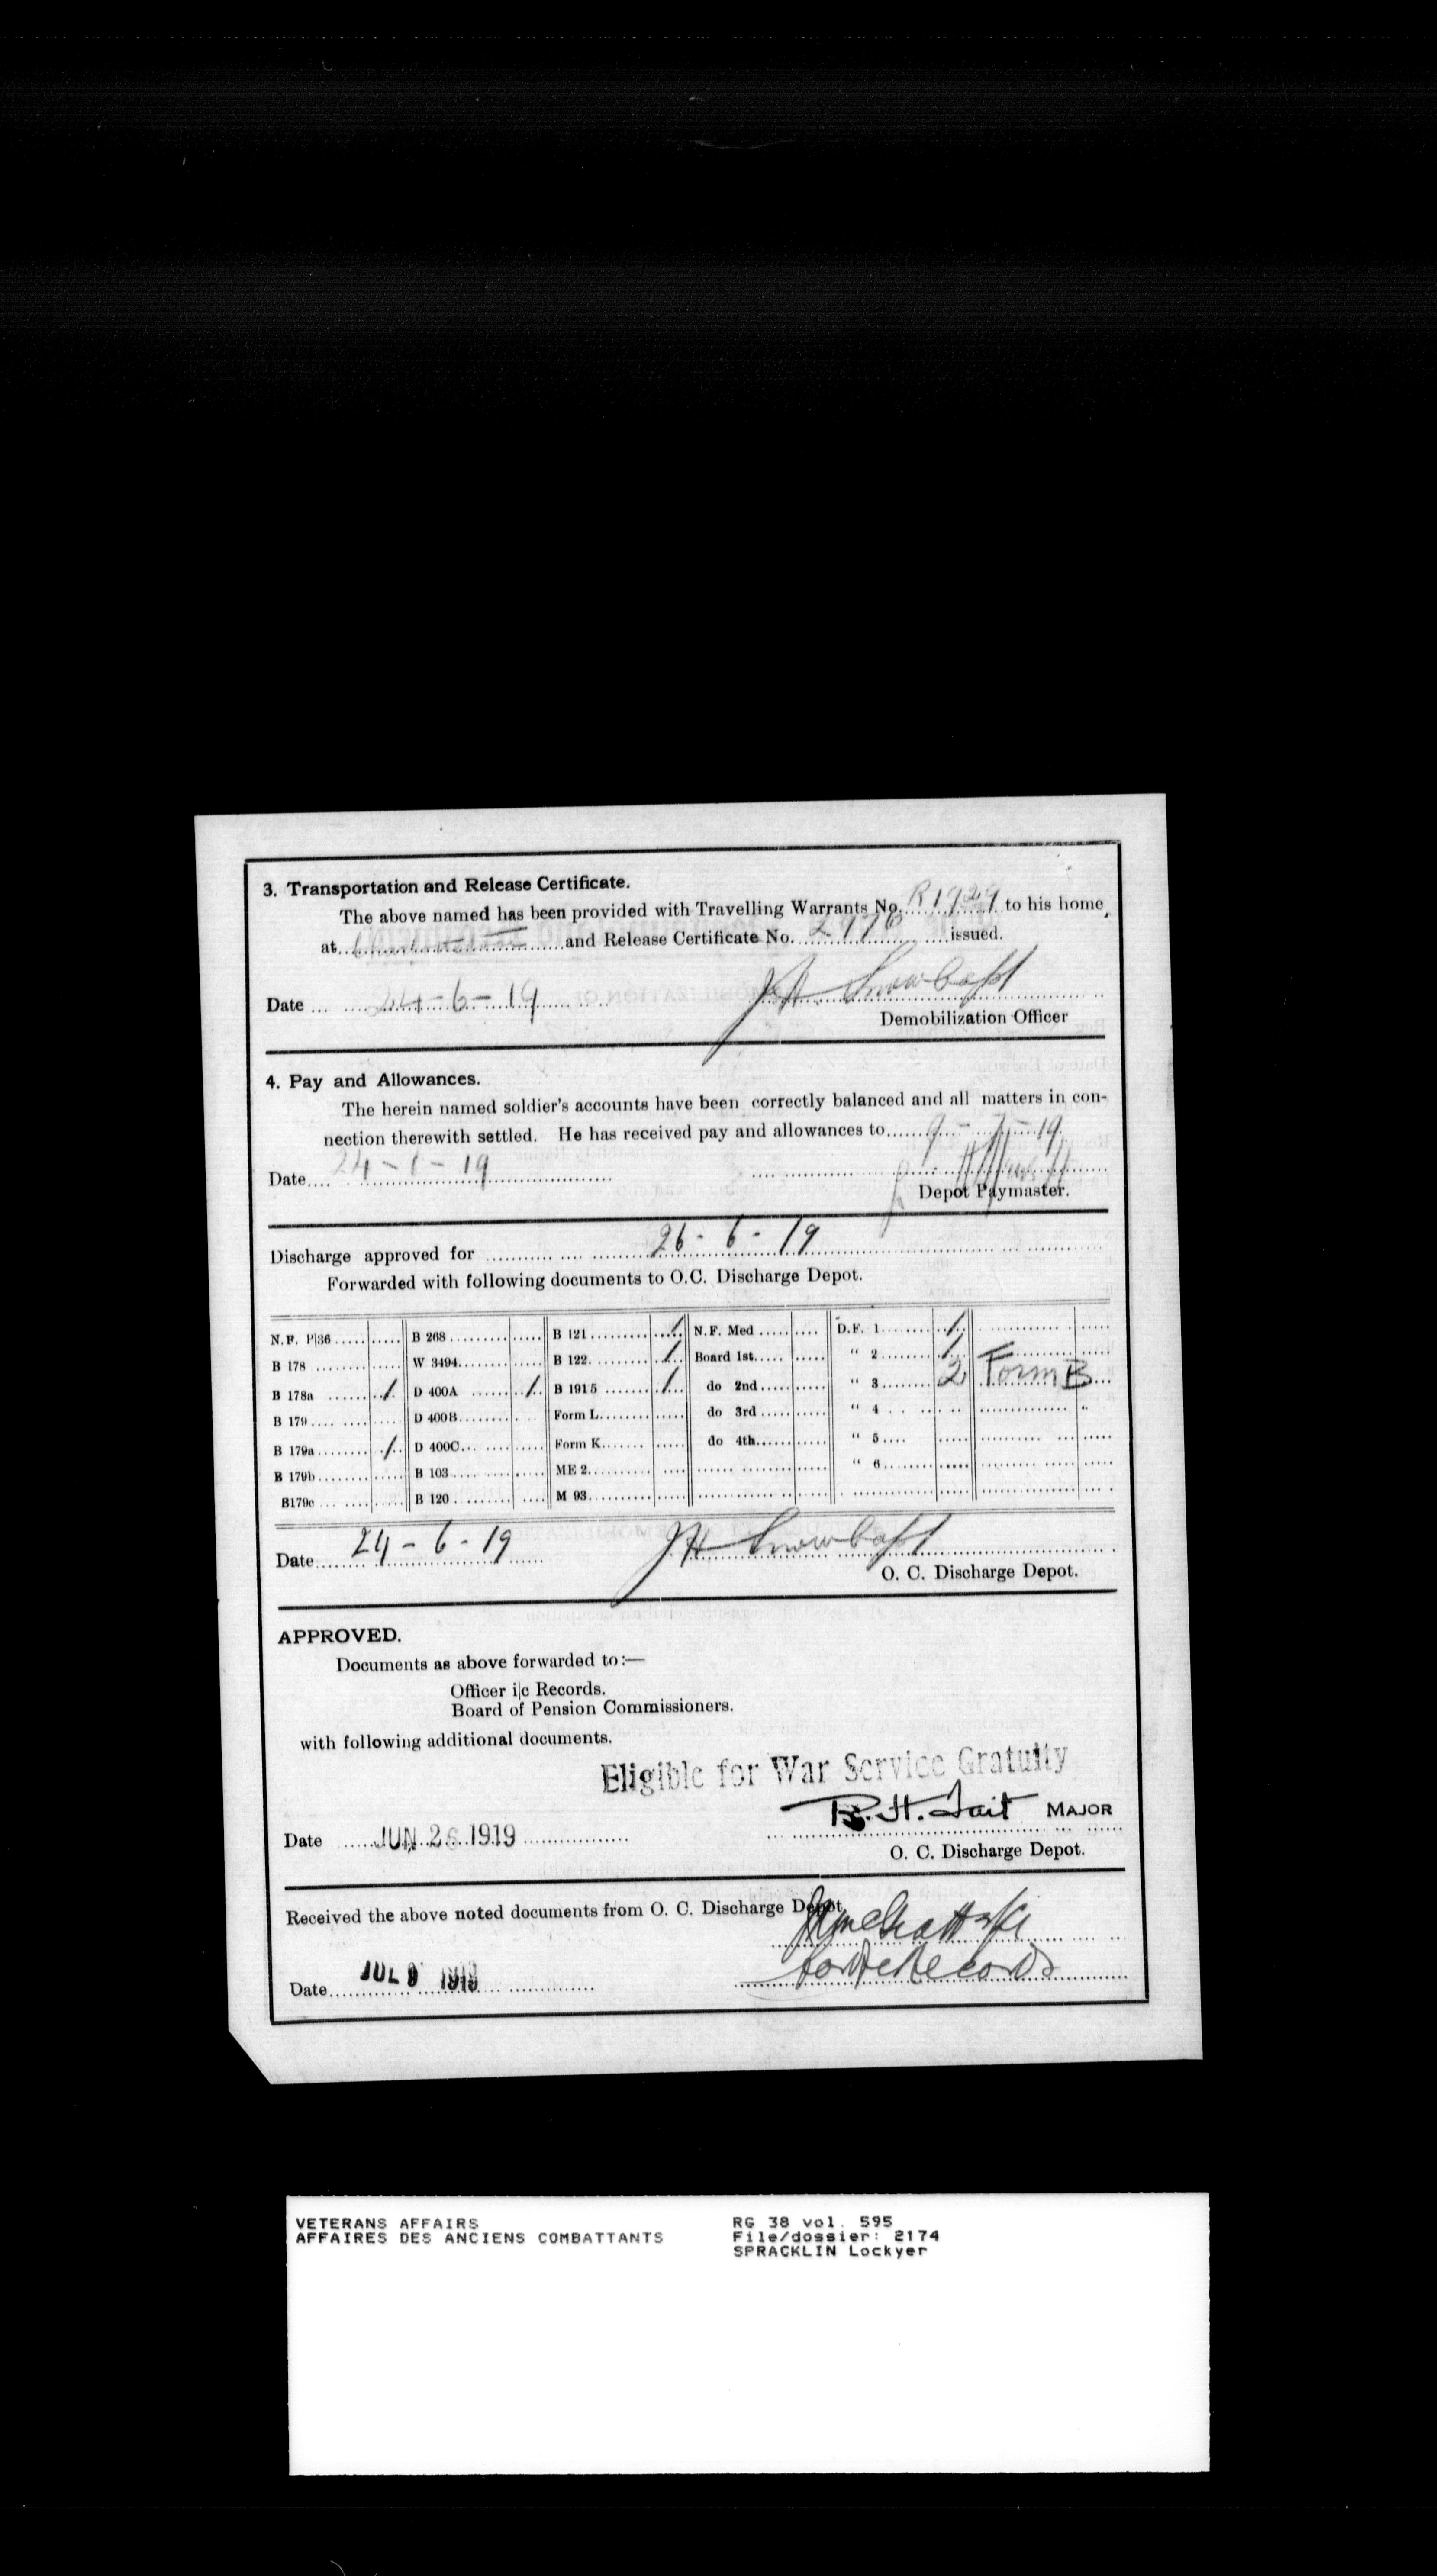 3. Transportation and Release Certificate.
The above named has been provided with Travelling Warrants No. R1929 to his home,
at and Release Certificate No. 2976 issued.
Date 24-6-19 JH Snow Capt
Demobilization Officer
4. Pay and Allowances.
The herein named soldier's accounts have been correctly balanced and all matters in con-
nection therewith settled. He has received pay and allowances to 9-7-19
Date 24-6-19
Depot Paymaster.
Discharge approved for 26-6-19
Forwarded with following documents to O.C. Discharge Depot.
N.F. P|36 B 268 B 121 / N.F. Med D.F. 1 /
B 178 W 3494 B 122 / Board 1st " 2 /
B 178a / D 400A / B 1915 / do 2nd " 3 2 Form B
B 179 D 400B Form L do 3rd " 4
B 179a / D 400C Form K do 4th " 5
B 179b B 103 ME 2 " 6
B179c B 120 M 93
Date 24-6-19 JH Snow Capt
O. C. Discharge Depot.
APPROVED.
Documents as above forwarded to:—
Officer i|c Records.
Board of Pension Commissioners.
with following additional documents.
Eligible for War Service Gratuity
R. H. Tait MAJOR
Date JUN 26 1919
O. C. Discharge Depot.
Received the above noted documents from O. C. Discharge Depot
Records
Date JUL 9 1919
VETERANS AFFAIRS RG 38 vol. 595
AFFAIRES DES ANCIENS COMBATTANTS File/dossier: 2174
SPRACKLIN Lockyer